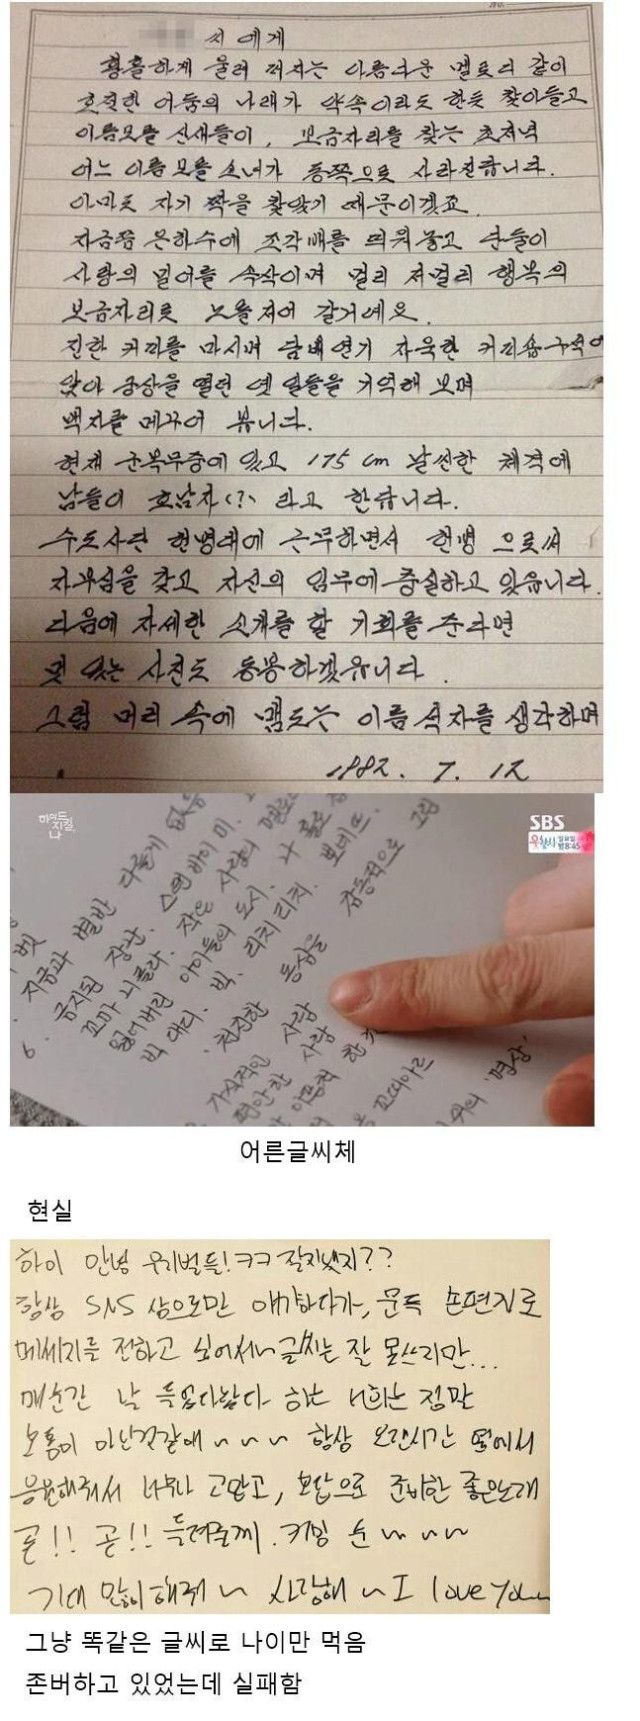 씨 에게
황홀하게 울려 퍼지는 아름다운 멜로디 같이
호젓한 어둠의 나래가 약속이라도 한듯 찾아들고
이름모를 산새들이, 보금자리를 찾는 초저녁
어느 이름 모를 소녀가 동쪽으로 사라진답니다.
아마도 자기 짝을 찾았기 때문이겠죠.
지금쯤 은하수에 조각배를 띄워놓고 단둘이
사랑의 밀어를 속삭이며 멀리 저멀리 행복의
보금자리로 노를저어 갈거예요.
진한 커피를 마시며 담배연기 자욱한 커피숍구석에
앉아 궁상을 떨던 옛 일들을 기억해 보며
백지를 메꾸어 봅니다.
현재 군복무중에 있고 175 cm 날씬한 체격에
남들이 호남자(?) 라고 한답니다.
수도사단 헌병대에 근무하면서 헌병 으로써
자부심을 갖고 자신의 임무에 충실하고 있읍니다.
다음에 자세한 소개를 할 기회를 준다면
멋 있는 사진도 동봉하겠읍니다.
그럼 머리 속에 맴도는 이름 석자를 생각하며
1982. 7. 12
하이드
지킬,
나
SBS
일요일
밤8:45
벳
지금과 별반 다를게 없
6. 금지된 장난.
꼬마 니콜라. 작은 사랑의 멜로
잃어버린 아이들의 도시. 나 홀로
빅 대디. 빅. 리치리치.
천진한 동심을 감동적으로 그린
가식적인 사랑
편안한 사랑
어른글씨체
현실
하이 안녕 우리벌들! ㅋㅋ 잘지냈지??
항상 SNS 상으로만 얘기하다가, 문득 손편지로
메세지를 전하고 싶어서~ 글씨는 잘 못쓰지만...
매순간 날 들었다놨다 하는 너희는 정말
보통이 아닌것같애 ~ ~ ~ 항상 오랜시간 뒤에서
응원해줘서 너무나 고맙고, 보답으로 준비한 좋은노래
곧!! 곧!! 들려줄께. 커밍 순 ~ ~ ~
기대 많이해줘 ~ 사랑해 ~ I love you
그냥 똑같은 글씨로 나이만 먹음
존버하고 있었는데 실패함